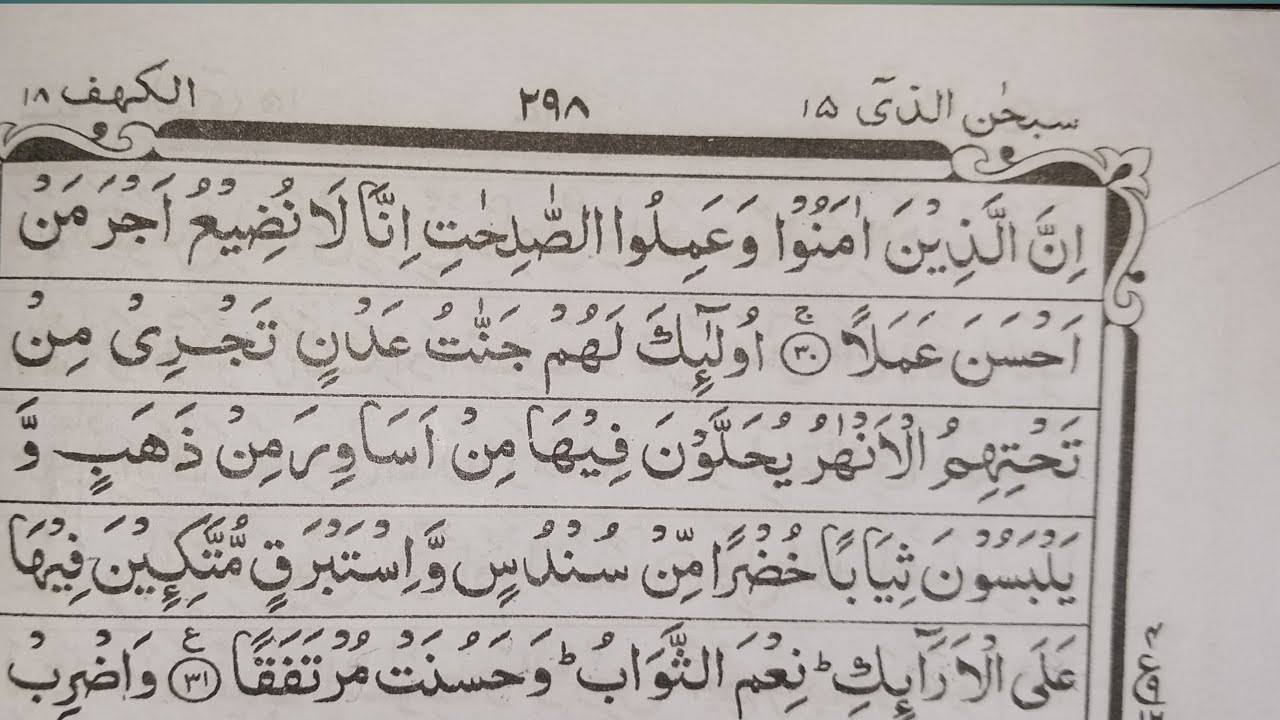 سبحٰن الذیٓ ۱۵ ۲۹۸ الکهف ۱۸
اِنَّ الَّذِيْنَ اٰمَنُوْا وَعَمِلُوا الصّٰلِحٰتِ اِنَّا لَا نُضِيْعُ اَجْرَ مَنْ
اَحْسَنَ عَمَلًا ۚ ﴿۳۰﴾ اُولٰٓئِكَ لَهُمْ جَنّٰتُ عَدْنٍ تَجْرِىْ مِنْ
تَحْتِهِمُ الْاَنْهٰرُ يُحَلَّوْنَ فِيْهَا مِنْ اَسَاوِرَ مِنْ ذَهَبٍ وَّ
يَلْبَسُوْنَ ثِيَابًا خُضْرًا مِّنْ سُنْدُسٍ وَّاِسْتَبْرَقٍ مُّتَّكِـِٕيْنَ فِيْهَا
عَلَى الْاَرَآئِكِ ؕ نِعْمَ الثَّوَابُ ؕ وَحَسُنَتْ مُرْتَفَقًا ﴿۳۱﴾ ع وَاضْرِبْ